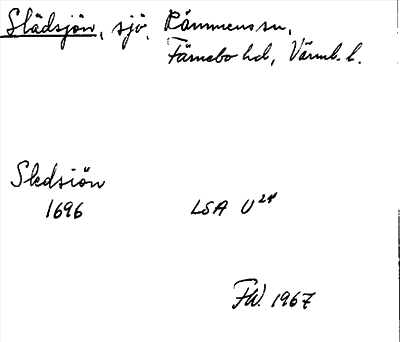 Slädsjön, sjö, Rämmens sn,
Färnebo hd, Värml. l.
Sledsiön
1696 LSA U24
F.W. 1967